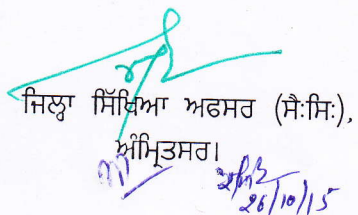 ਜਿਲ੍ਹਾ ਸਿੱਖਿਆ ਅਫਸਰ (ਸੈ:ਸਿ:),
ਅੰਮ੍ਰਿਤਸਰ।
26/10/15